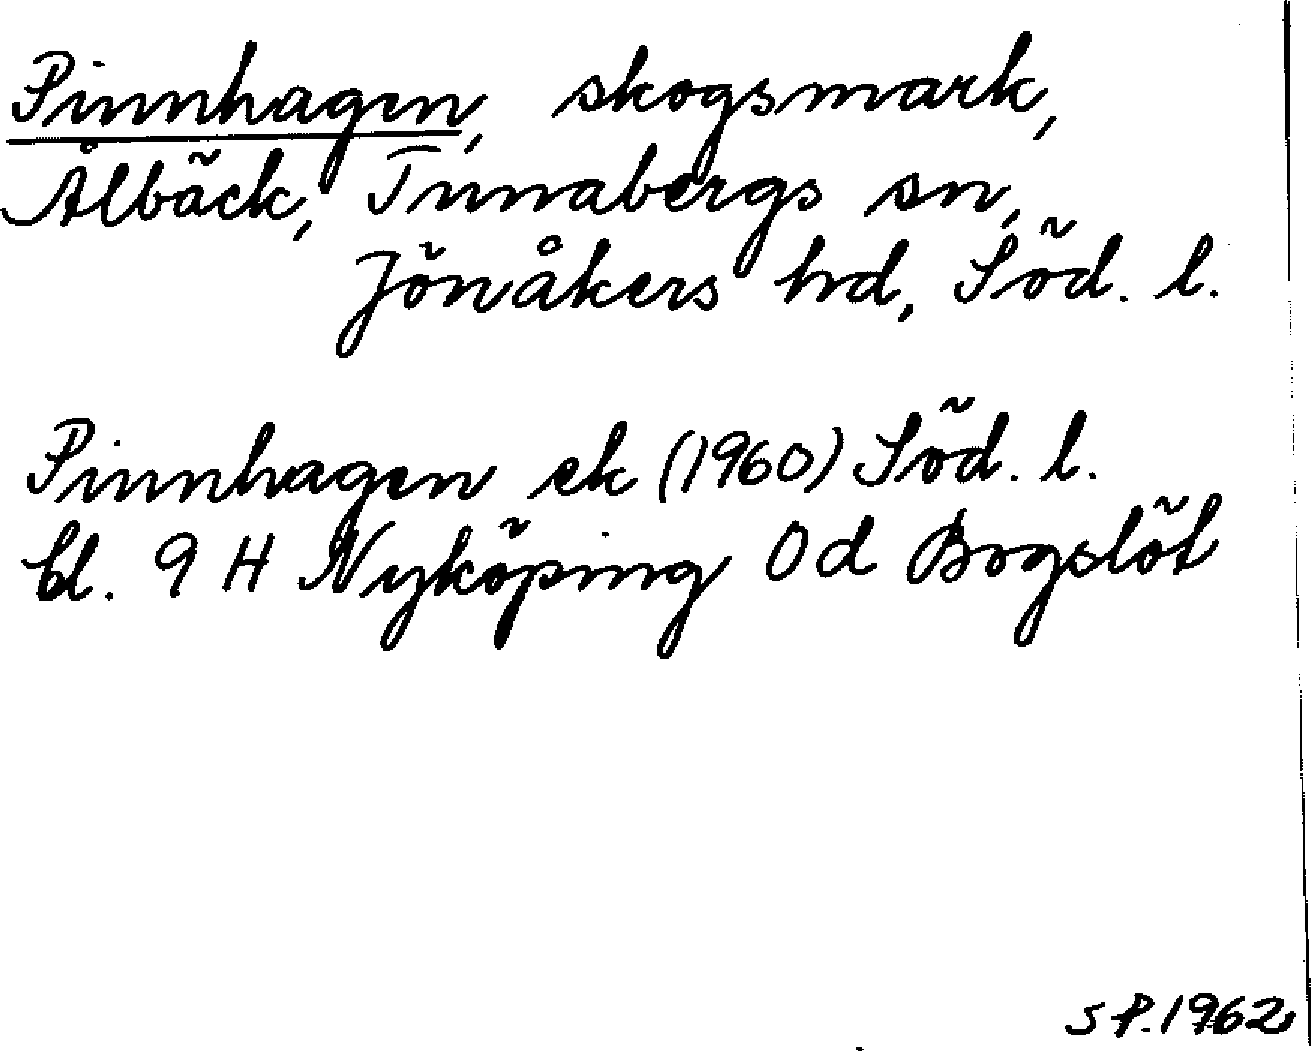 Pinnhagen, skogsmark,
Ålbäck, Tunabergs sn,
Jönåkers hd, Söd. l.
Pinnhagen ek (1960) Söd. l.
bl. 9 H Nyköping 0d Bogslöt
SP. 1962